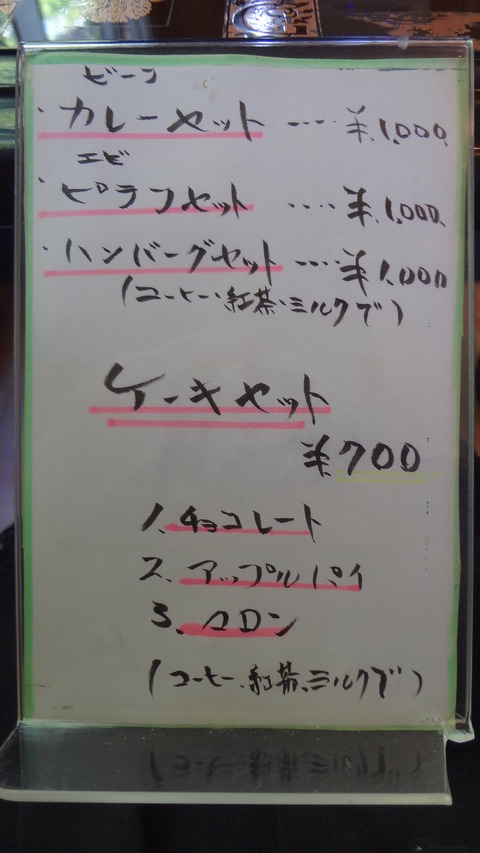 ビーフ
・カレーセット ‥‥ ¥1,000
エビ
・ピラフセット ‥‥ ¥1,000
・ハンバーグセット ‥‥ ¥1,000
(コーヒー・紅茶・ミルク)
ケーキセット
¥700
1、チョコレート
2、アップルパイ
3、マロン
(コーヒー、紅茶、ミルク)